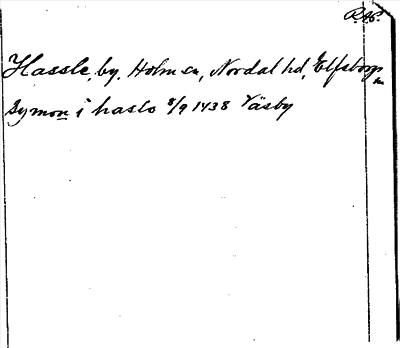 R.A.
Hassle, by, Holm sn, Nordal hd, Elfsborgs
ln
Symon i haslo 8/9 1438 Väsby